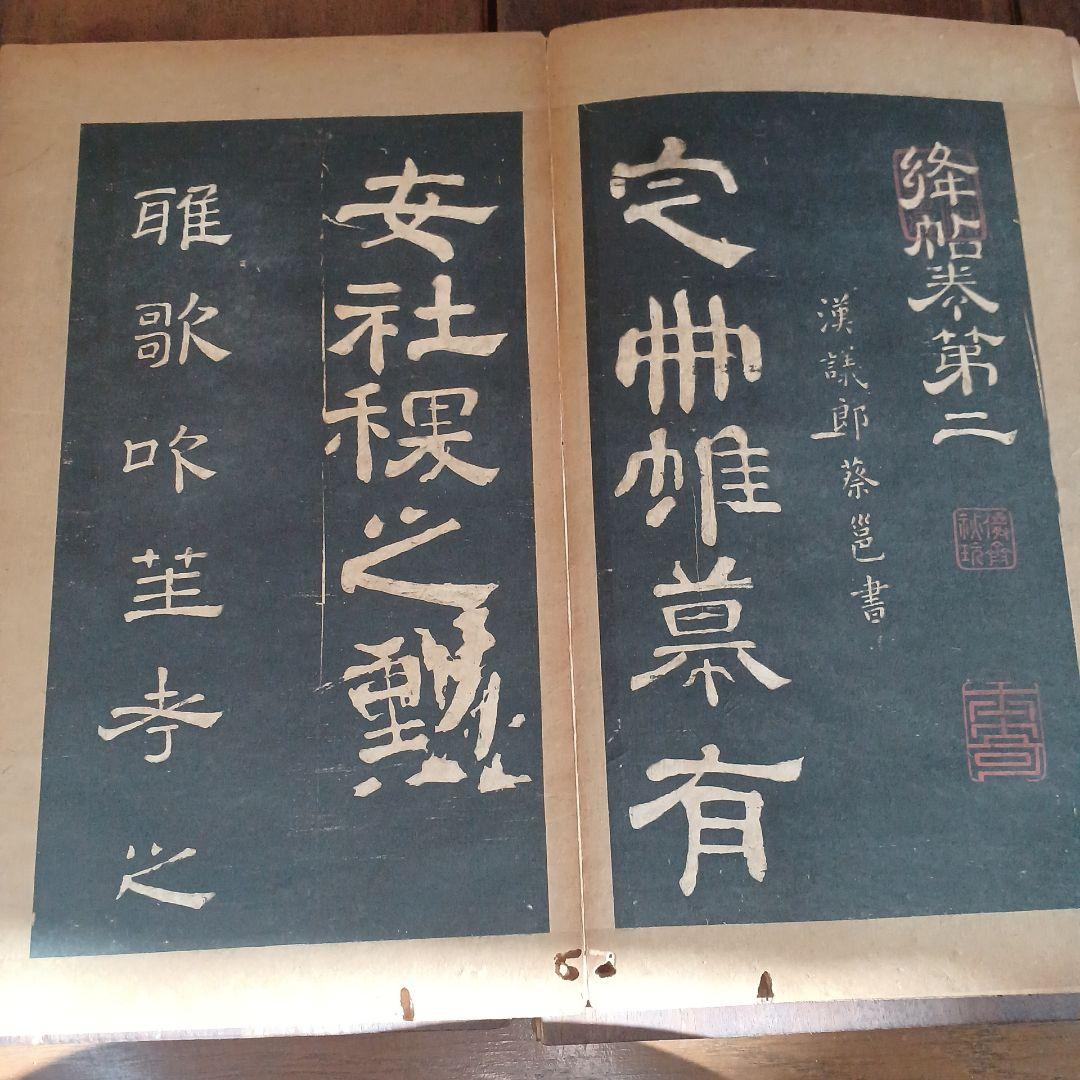 絳帖卷第二
漢議郎蔡邕書
定冊帷幕有
安社稷之勳
雎歌吹考之